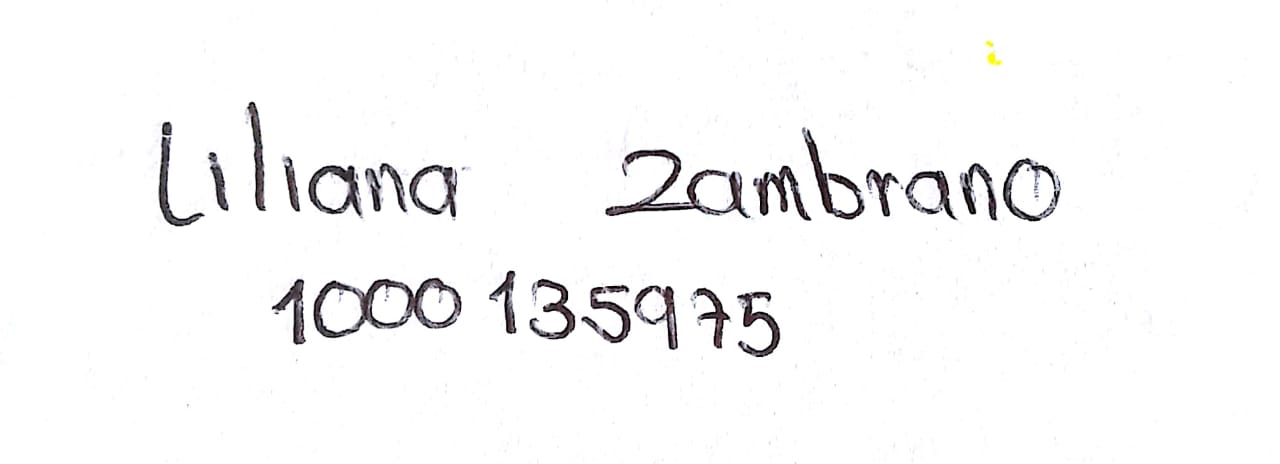 Liliana Zambrano
1000135975